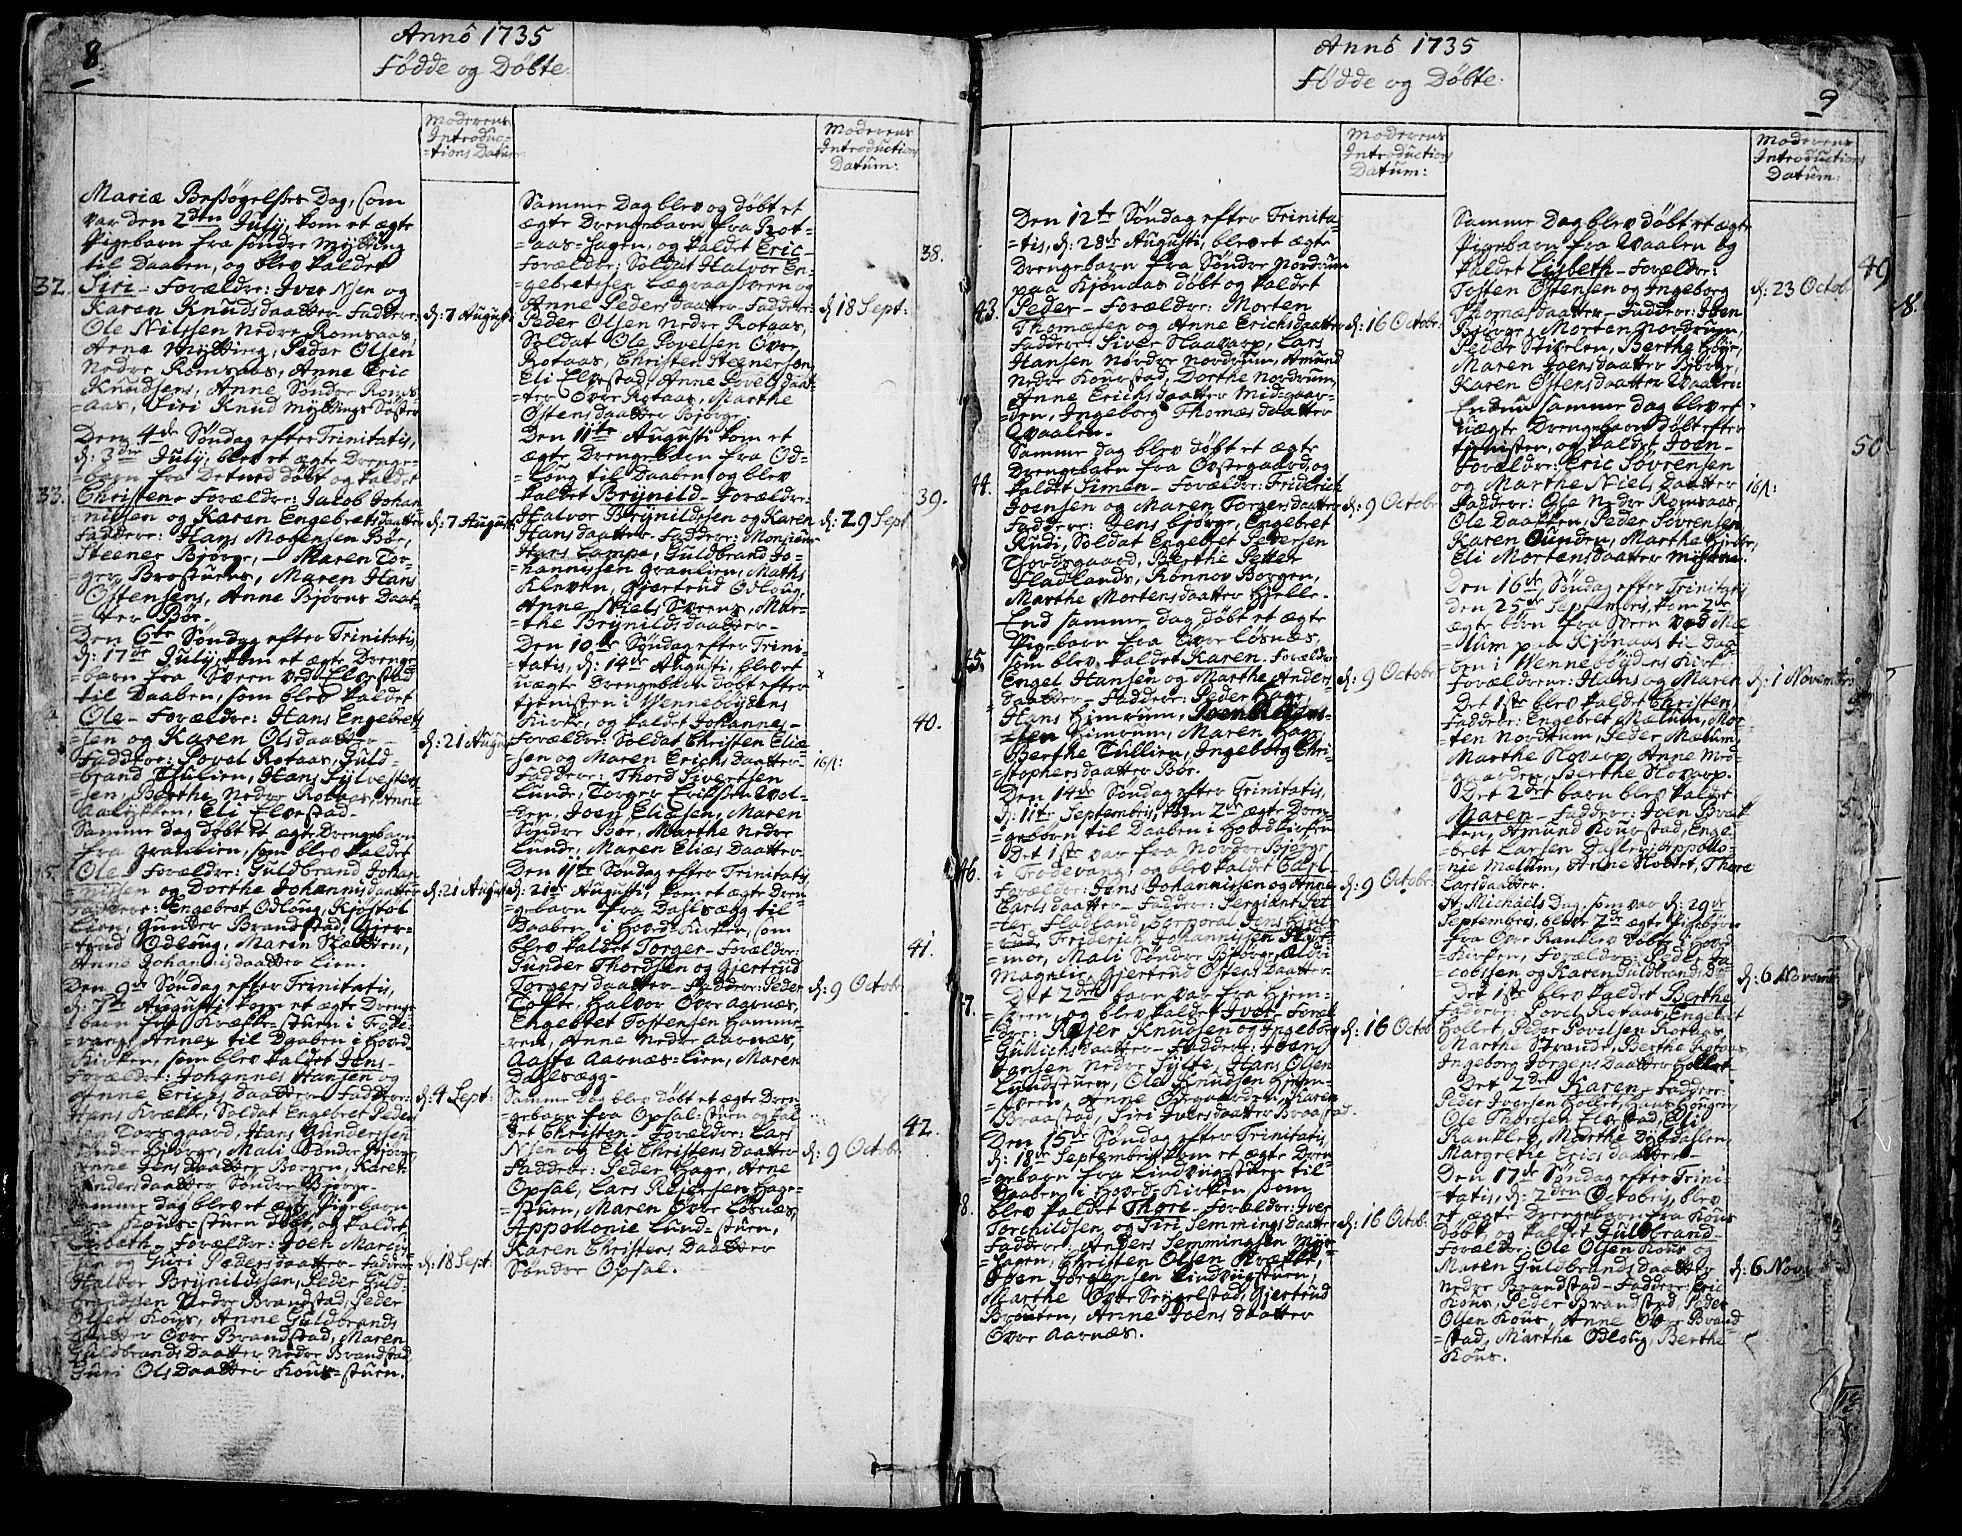 8
Anno 1735
Fødde og Døbte:
Moderens
Introduc-
=tions Datum
Mariæ Besøgelses Dag, som
var den 2den July, kom et ægte
Pigebarn fra søndre Mytting
til Daaben, og blev kaldet
32. Siri - Forældre: Iver Nsen og
Karen Knudsdaatter - Faddere: d: 7 Augusti
Ole Nilssen Nedre Romsaas,
Arne Mytting, Peder Olsen
Nedre Romsaas, Anne Eric
Knudsens, Anne Søndre Roms-
=aas, Siri Knud Myttings Doster
Den 4de Søndag efter Trinitatis,
d: 3die July, blev et ægte Drenge-
=barn fra døbt og kaldet
33. Christen - Forældre: Jacob Johan-
nissen og Karen Engebretsdaatter d: 7 Augusti
Faddere: Hans Mogensen Bøe,
Steener Bjørge, - Maren Tor-
=ger Brostuens, Maren Hans
Østensens, Anne Bjørns Daat-
=ter Bøe.
Den 6te Søndag efter Trinitatis,
d: 17de July, kom et ægte Drenge-
=barn fra Sveen ved Elvestad
til Daaben, som blev kaldet
Ole - Forældre: Hans Engebret-
sen og Karen Olsdaatter d: 21 August
Faddere: Povel Rotaas, Guld-
brand Thulien, Hans Sylvesters-
=sen, Berthe Nedre Rotaas, Anne
Aaløkken, Eli Elvestad -
Samme dag døbt et ægte Drengebarn
fra Granlien, som blev kaldet
Ole - Forældre: Guldbrand Johan-
nissen og Dorthe Johannisdaatter d: 21 August
Faddere: Engebret Odloug, Kjøstol
Lien, Gunder Brandstad, Gjer-
=trud Odloug, Maren Slætten,
Anne Johannisdaatter Lien.
Den 9de Søndag efter Trinitatis,
d: 7de Augusti, kom et ægte Drenge-
=barn fra Kræke-stuen i Frode-
=vang Annex til Daaben i Hoved
Kirken, som blev kaldet Jens -
Forældre: Johannes Hansen og
Anne Erichsdaatter - Faddere: d: 4 Sept:
Hans Kræke, Soldat Engebret Peder-
sen Torsgaard, Hans Gundersen
Søndre Bjørge, Mali Søndre Bjørge,
Anne Jens Daatter Borgen, Karen
Andersdaatter Søndre Bjørge -
Samme dag blev et ægte Pigebarn
fra Kous-stuen døbt, og kaldet
Lisbeth - Forældre: Joen
og Guri Pedersdaatter - Faddere d: 18 Sept:
Halvor Brynildssen, Peder Guld-
brandsen Nedre Brandstad, Peder
Olsen Kous, Anne Guldbrands
Daatter Øvre Brandstad, Maren
Guldbrands Daatter Nedre Brandstad
Guri Ols Daatter Kous-stuen.
Moderens
Introduction
Datum:
Samme Dag blev og døbt et
ægte Drengebarn fra Rot-
=aas-hagen, og kaldet Eric - 38.
Forældre: Soldat Halvor En-
=gebretsen Lægraasveen og
Anne Pedersdaatter - Faddere: d 18 Sept:
Peder Olsen Nedre Rotaas,
Soldat Ole Povelsen Øvre
Rotaas, Christen Steenersen
Eli Elvestad, Anne Povels daat-
=ter Øvre Rotaas, Marthe
Østensdaatter Bjørge.
Den 11te Augusti kom et
ægte Drengebarn fra Od-
=loug til Daaben, og blev
kaldet Brynild - Forældre: 39.
Halvor Brynildssen og Karen d: 29 Sept:
Hansdaatter - Faddere: Monsieur
Hans Lampe, Guldbrand Jo-
=hannissen Granlien, Maths
Kleven, Gjertrud Odloug,
Anne Niels Sveens, Mar-
=the Brynildsdaatter -
Den 10de Søndag efter Trini-
=tatis, d: 14de Augusti, blev et
uægte Drengebarn døbt efter
tienisten i Vennebøydens
Kirke, og kaldet Johannes - 40.
Forældre: Soldat Christen Eliæ-
sen og Maren Erichsdaatter -
Faddere: Thord Sivertsen
Lunde, Torger Erikssen Vol-
=den, Joen Eliæsen, Maren
Søndre Bøe, Marthe Nedre
Lunde, Maren Eliæs Daatter -
Den 11te Søndag efter Trinitatis
d: 21de Augusti, kom et ægte Dren-
=gebarn fra Dahlsægg til
Daaben i Hoved Kirken, som
blev kaldet Torger - Forældre: 41.
Gunder Thordsen og Gjertrud
Torgersdaatter - Faddere: Peder d: 9 Octobr
Tofte, Halvor Øvre Aarnæs,
Engebret Tostensen Hamme-
=ren, Anne Nedre Aarnæs,
Aaste Aarnæs-lien, Maren
Dahlsægg -
Samme dag blev døbt et ægte Dren-
=gebarn fra Opsal-stuen og kal-
=det Christen - Forældre: Lars 42.
Nsen og Eli Christensdaatter d: 9 Octobr
Faddere: Peder Hage, Arne
Opsal, Lars Rejersen Hage-
=stuen, Maren Øvre Løsnæs,
Appollonie Lund-stuen,
Karen Christens Daatter
Søndre Opsal.
Anno 1735
Fødde og Døbte:
9
Moderens
Introduction
Datum:
Den 12te Søndag efter Trinita-
=tis, d: 28de Augusti, blev et ægte
Drengebarn fra Søndre Nordrum
paa Kjønaas døbt og kaldet
43. Peder - Forældre: Morten
Thomæsen og Anne Erichsdaatter d: 16 Octobr:
Faddere: Siver Haavarp, Lars
Hansen Nordre Nordrum, Amund
Nedre Kourstad, Dorthe Nordrum
Anne Erichsdaatter Midgaar-
=den, Ingeborg Thomæsdaatter
Vaalen.
Samme dag blev døbt et ægte
Drengebarn fra Øvstegaard, og
44. kaldet Simen - Forældre: Friderich
Joensen og Maren Torgersdaatter d: 9 Octobr
Faddere: Jens Bjørge, Engebret
Rudi, Soldat Engebret Pedersen
Tordsgaard, Berthe Petter
Fladlands, Rønnov Borgen,
Marthe Mortensdaatter Hjelle.
End samme dag døbt et ægte
Pigebarn fra Øvre Løsnæs,
45. som blev kaldet Karen - Forældre
Engel Hansen og Marthe Anders- d: 9 October
daatter - Faddere: Peder Hage
Hans Himrum,
Himrum, Maren Hage,
Berthe Tullien, Ingeborg Chri-
=stophersdaatter Bøe.
Den 14de Søndag efter Trinitatis,
d: 11te Septembris, kom 2de ægte Dren-
=gebørn til Daaben i Hoved Kirken
Det 1ste var fra Nordre Bjørge
46. i Frodevang, og blev kaldet Carl -
Forældre: Jens Johannissen og Anne d: 9 October
Carlsdaatter - Faddere: Sergiant Pet-
ter Fladland, Corporal Jens
Friderich Johannissen
mor, Mali Søndre Bjørge, Aldri
Magnlie, Gjertrud Østens Daatter -
47. Det 2det barn var fra Hjem-
=sveen, og blev kaldet Iver - Foræl-
dre: Rejer Knudsen og Ingeborg d: 16 Octob:
Gullichsdaatter - Faddere: Joen
Jansen Nedre Fylke, Hans Olsen
Lundstuen, Ole Knudsen Hjem-
=sveen, Anne Opgaarden, Karen
Braastad, Siri Iversdaatter Braastad.
Den 15de Søndag efter Trinitatis,
d: 18de Septembris, kom et ægte Dren-
=gebarn fra Lindvigstuen til
Daaben i Hoved-Kirken, som
48. blev kaldet Thore - Forældre: Iver
Torchildsen og Siri Semmingsdaatter d: 16 Octob:
Faddere: Anders Semmingsen Myr-
=hagen, Christen Olsen Kræke,
Joen Jørgensen Lindvigstuen,
Marthe Øvre Svigelstad, Gjertrud
Brouten, Anne Joensdaatter
Øvre Aarnæs.
Moderens
Introduction
Datum:
Samme Dag blev døbt et ægte
Pigebarn fra Vaalen og
kaldet Lisbeth - Forældre: 49
Tosten Østensen og Ingeborg d: 23 Octob:
Thomæsdaatter - Faddere: Iven
Bjørge, Morten Nordrum,
Peder Stivelen, Berthe Bøje,
Maren Joensdaatter Bjørge,
Karen Østensdaatter Vaalen
Endnu samme dag blev et
uægte Drengebarn døbt efter
tienisten, og kaldet Joen - 50.
Forældre: Eric Sovrensen
og Marthe Niels Daatter
Faddere: Ole Nedre Romsaas,
Ole Daakken, Peder Sovrensen
Karen Sunden, Marthe
Eli Mortensdaatter
Den 16de Søndag efter Trinitatis
den 25de Septembris, kom 2de
ægte børn fra Sveen ved Mæ-
lum paa Kjønaas til Daa-
ben i Vennebøydens Kirke
Forældrene: Hans og Maren d: 1 November
Det 1ste blev kaldet Christen,
Faddere: Engebret Mælum, Mor-
ten Nordrum, Peder Mælum,
Marthe Hovarp, Anne Mid-
gaarden, Berthe Hovarp.
Det 2det barn blev kaldet
Maren - Faddere: Joen Bræk-
ken, Amund Kourstad, Enge-
bret Larsen Dahlen, Appollo-
nie Mælum, Anne Kloltet, Thore
Larsdaatter.
St: Michaels Dag, som var d: 29de
Septembris, bleve 2de ægte Pigebørn
fra Øvre Ranklev døbte i Hoved
Kirken, Forældre: Peder Ja-
cobsen og Karen Guldbrandsd= d: 6 Novembr
Det 1ste blev kaldet Berthe
Faddere: Povel Rotaas, Engebret
Hollet, Peder Povelsen Rotaas
Marthe Strande, Berthe Rotaas,
Ingeborg Jørgens Daatter Hollet -
Det 2det Karen - Faddere:
Peder Iversen Hollet, Haugen,
Ole Thordsen Elvestad, Eli
Ranklev, Marthe Dahlen,
Margrethe Erics daatter -
Den 17de Søndag efter Trini-
=tatis, d: 2den Octobris, blev
et ægte Drengebarn fra Kous
døbt, og kaldet Guldbrand -
Forældre: Ole Olsen Kous og
Maren Guldbrandsdaatter d: 6 Nov:
Nedre Brandstad - Faddere: Eric
Kous, Peder Brandstad, Peder
Olsen Kous, Anne Øvre Brand-
=stad, Marthe Odloug, Berthe
Kous.